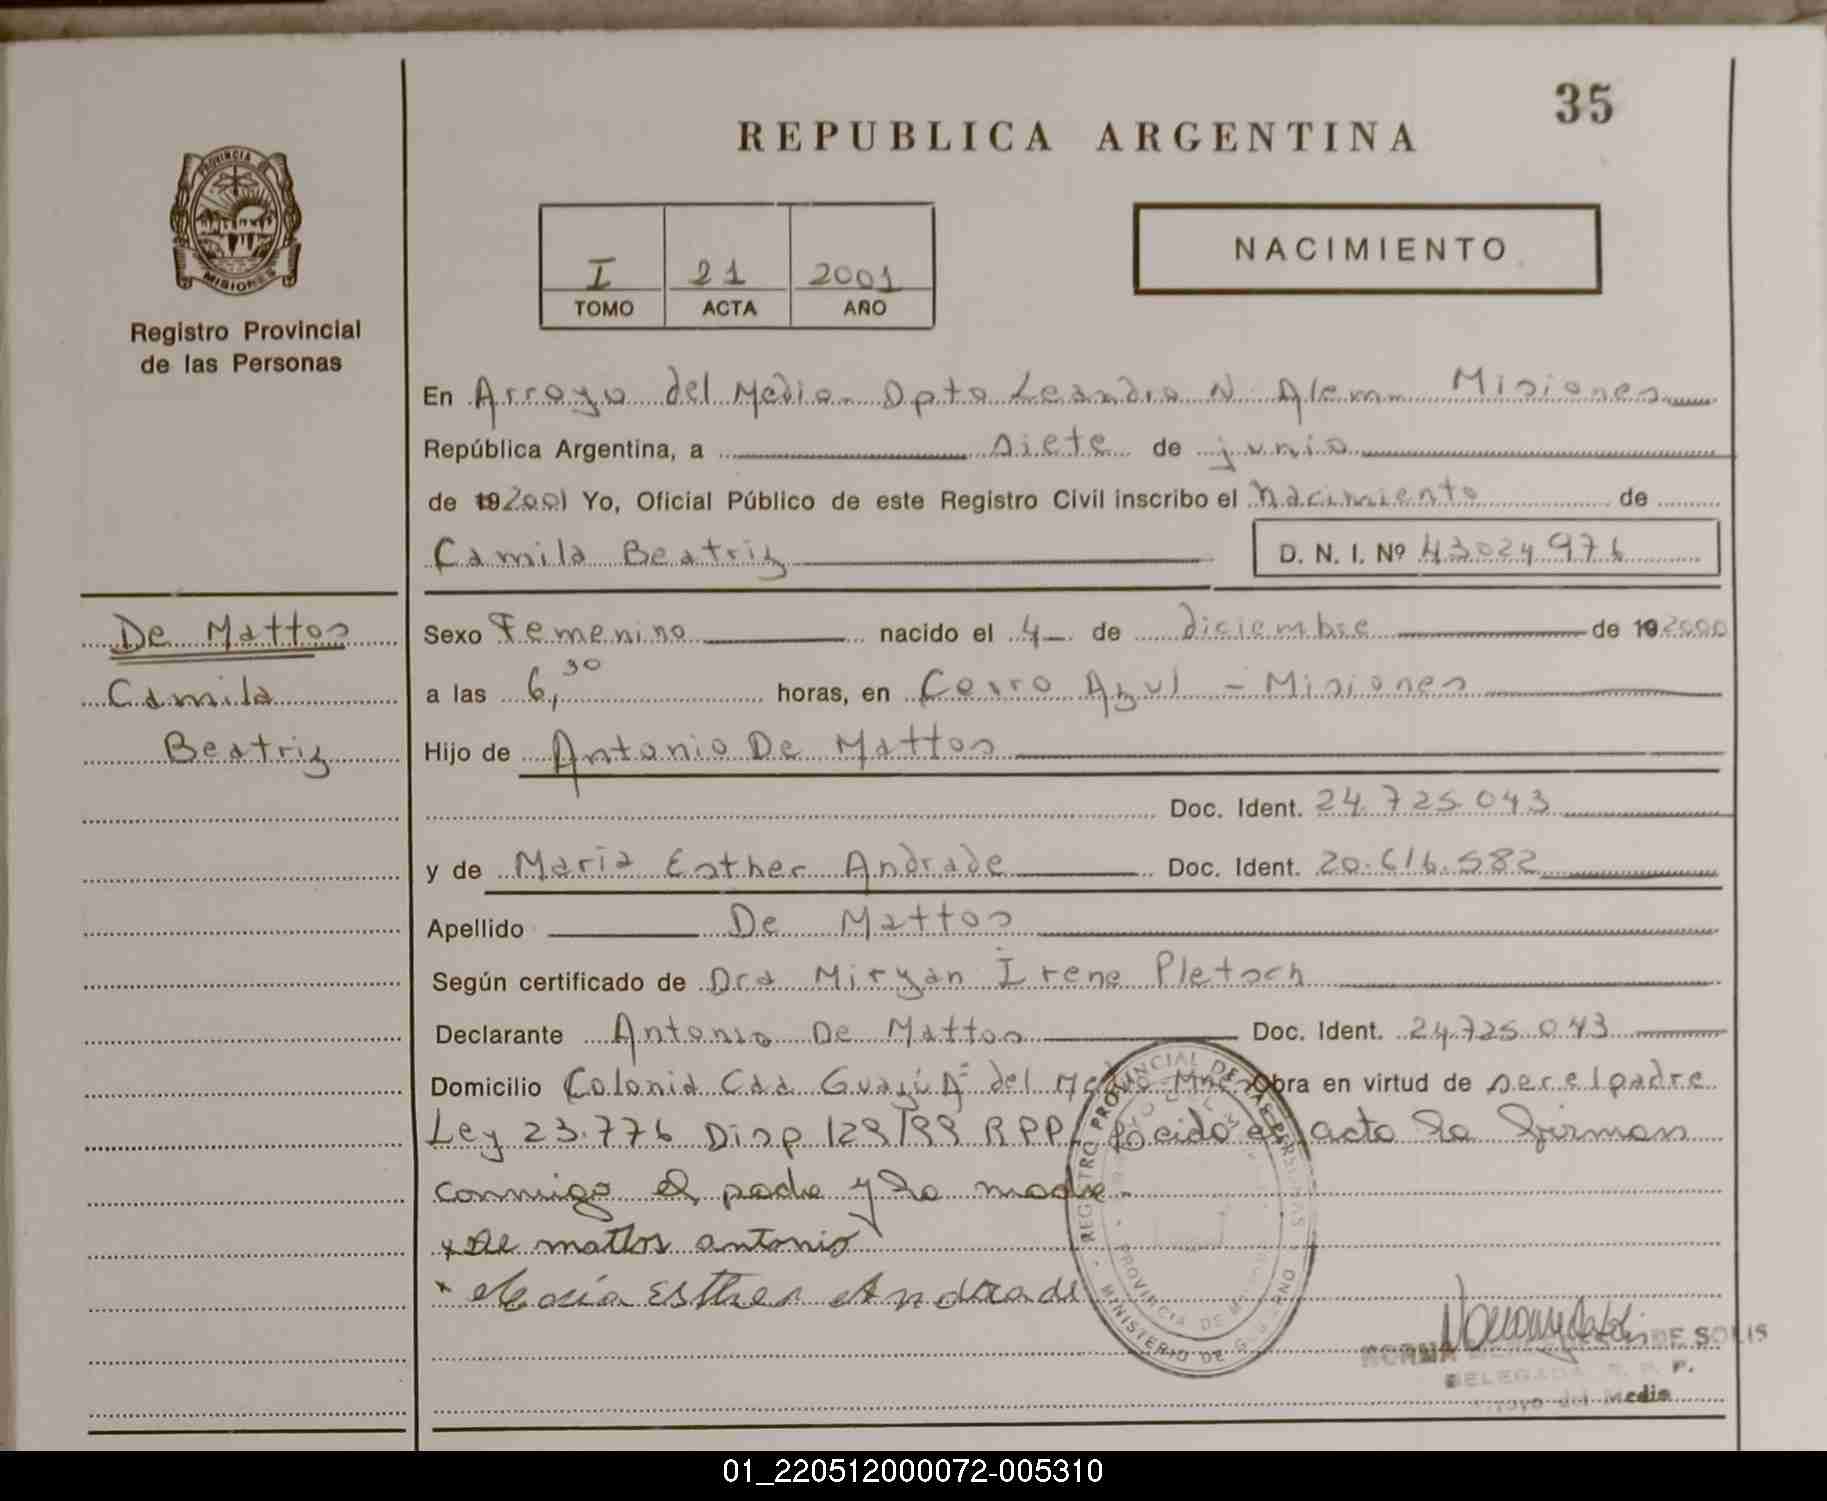 35
REPUBLICA ARGENTINA
PROVINCIA
MISIONES
Registro Provincial
de las Personas
I 21 2001
TOMO ACTA AÑO
NACIMIENTO
En Arroyo del Medio. Dpto Leandro N. Alem. Misiones
República Argentina, a siete de junio
de 192001 Yo, Oficial Público de este Registro Civil inscribo el nacimiento de
Camila Beatriz D. N. I. Nº 43024976
De Mattos
Camila
Beatriz
Sexo Femenino nacido el 4 de diciembre de 192000
a las 6,30 horas, en Cerro Azul - Misiones
Hijo de Antonio De Mattos
Doc. Ident. 24.725.043
y de Maria Esther Andrade Doc. Ident. 20.616.582
Apellido De Mattos
Según certificado de Dra Miryan Irene Pletsch
Declarante Antonio De Mattos Doc. Ident. 24.725.043
Domicilio Colonia Caa Guazú Aº del Medio Mnes Obra en virtud de ser el padre
Ley 23.776 Disp 129/99 RPP. acta la firman
conmigo el padre y la madre.
x De mattos antonio
x María Esther Andrade
REGISTRO PROVINCIAL DE LAS PERSONAS
PROVINCIA DE
MINISTERIO DE
NORMA DE SOLIS
DELEGADA R. P. P.
Arroyo del Medio
01_220512000072-005310